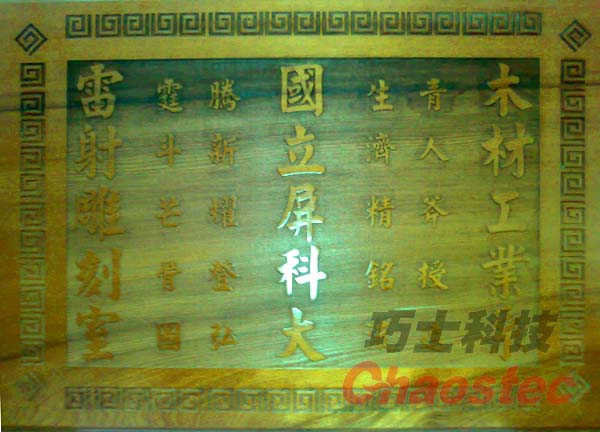 木材工業
青人斧授
生濟精銘
國立屏科大
騰新耀登弘
霆斗芒晉
雷射雕刻室
巧士科技
Chaostec